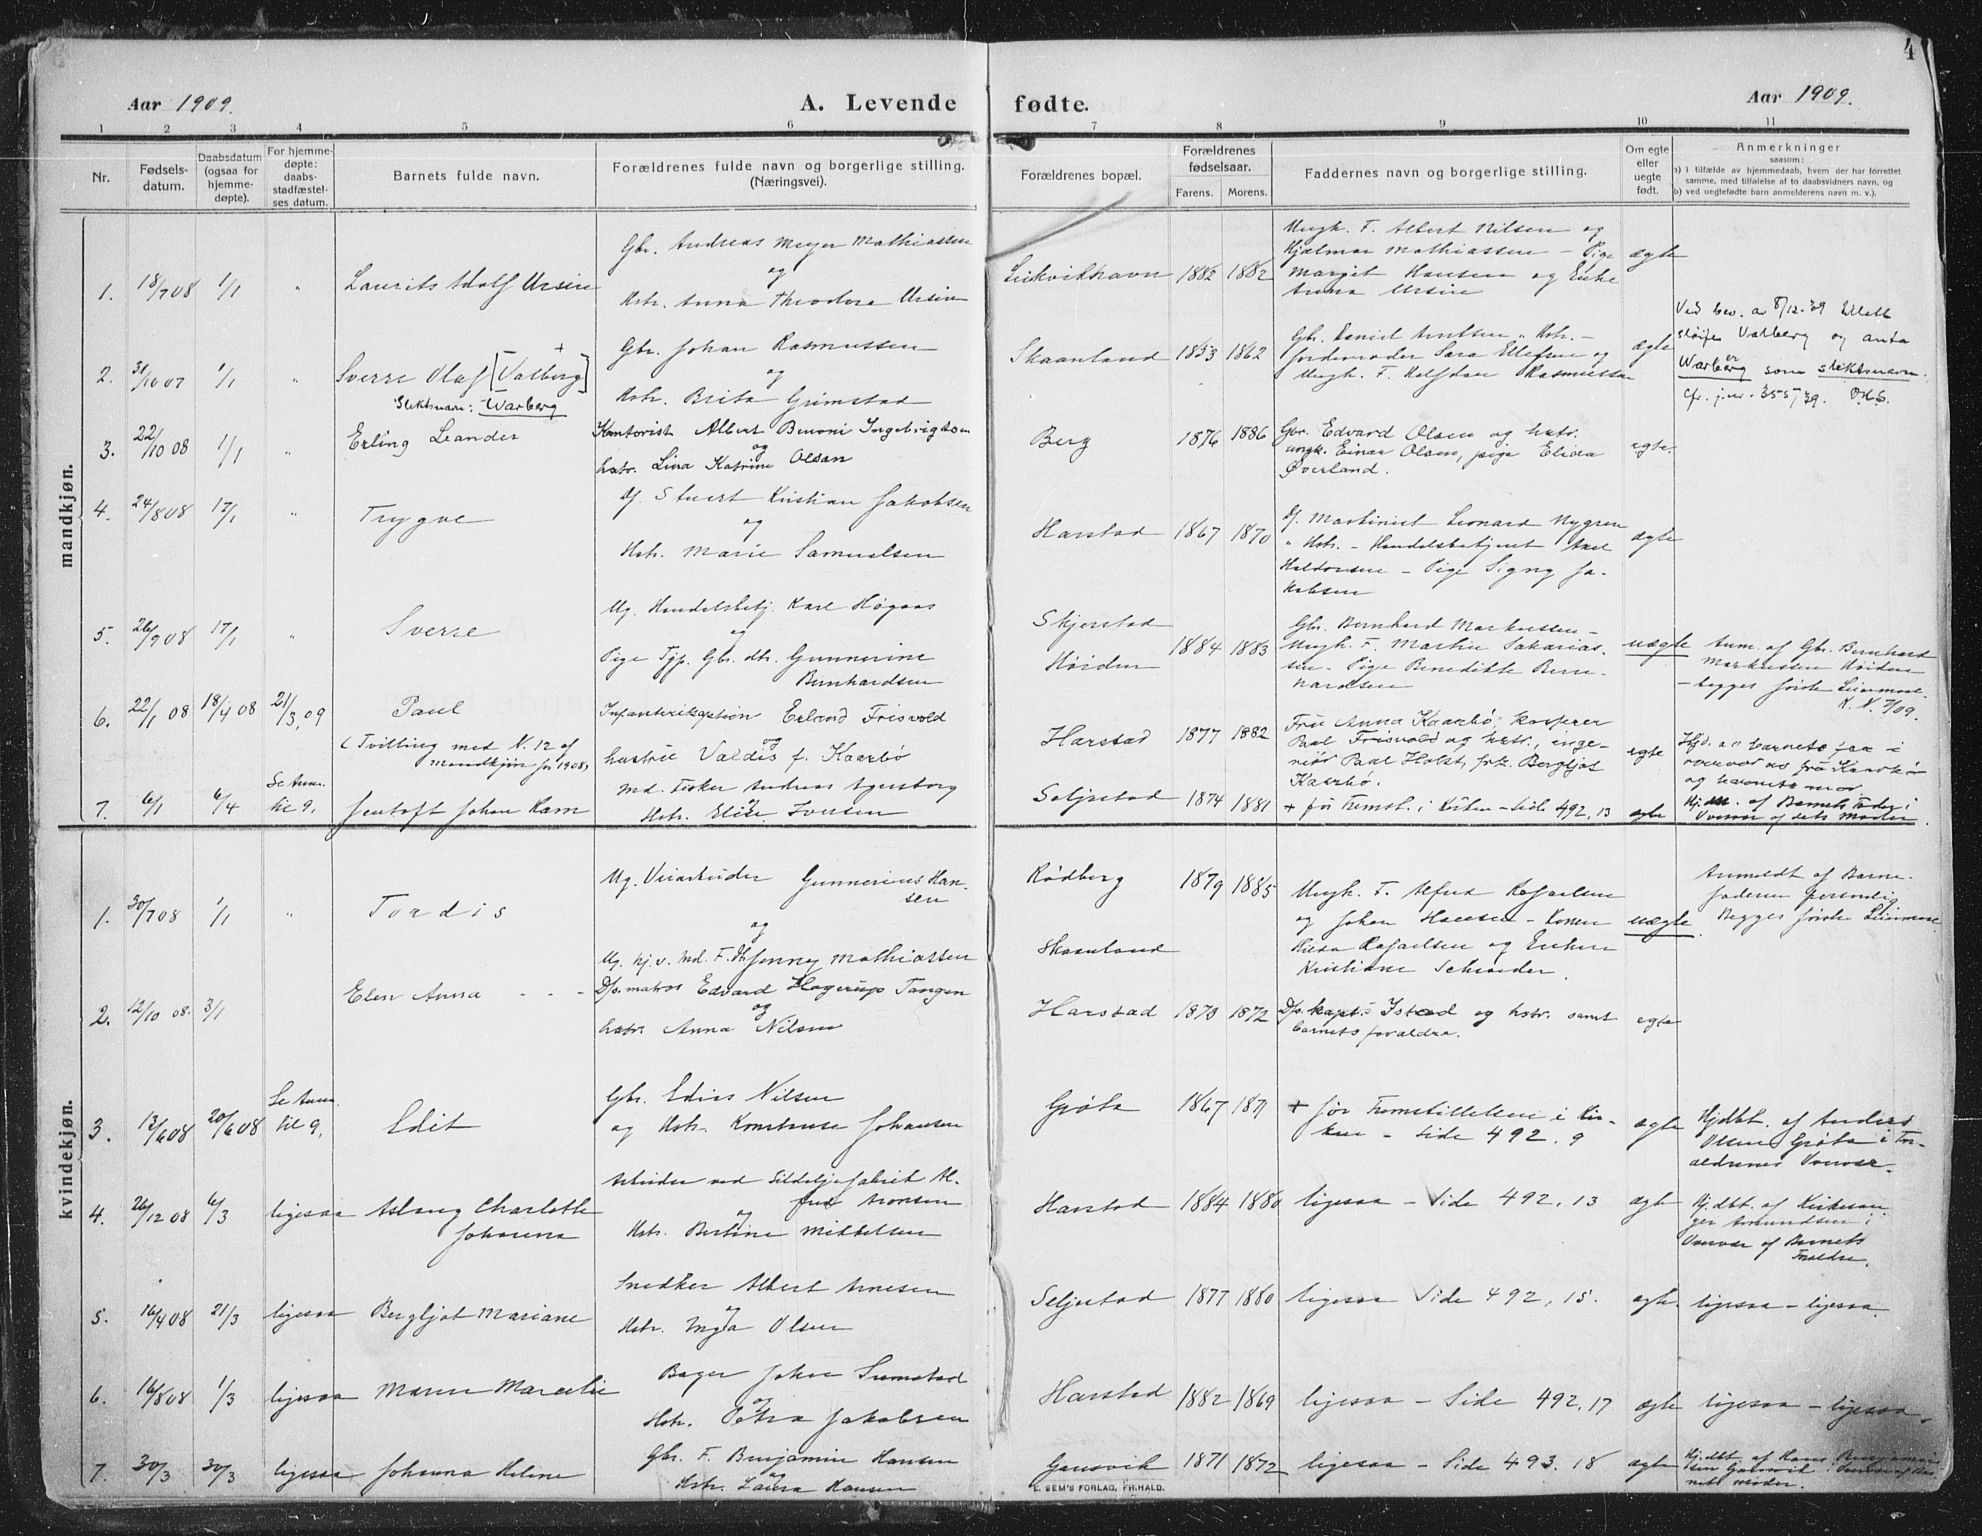 4
Aar 1909.
A. Levende
fødte.
Aar 1909.
1 2 3 4 5 6 7 8 9 10 11
Nr.
Fødsels-
datum.
Daabsdatum
(ogsaa for
hjemme-
døpte).
For hjemme-
døpte:
daabs-
stadfæstel-
ses datum.
Barnets fulde navn.
Forældrenes fulde navn og borgerlige stilling.
(Næringsvei).
Forældrenes bopæl.
Forældrenes
fødselsaar.
Farens. Morens.
Faddernes navn og borgerlige stilling.
Om egte
eller
uegte
født.
Anmerkninger
saasom:
a) i tilfælde av hjemmedaab, hvem der har forrettet
samme, med tilføielse af to daabsvidners navn, og
b) ved uegtefødte barn anmelderens navn m. v.).
mandkjøn.
1. 18/7 08 1/1 " Laurits Adolf Ursin
Gbr. Andreas Meyer Mathiassen
og
Hstr. Anna Theodora Ursin
1882 1882
Ungk. F. Albert Nilsen og
Hjalmar Mathiassen – Pige
Margit Hansen og Enke
Anna Ursin
ægte
2. 31/10 07 1/1 " Sverre Olaf [Valberg]
Slektsnavn: Warberg
Gbr. Johan Rasmussen
og
Hstr. Brita Grimstad
Skaanland 1853 1862
Gbr. Daniel Arntsen " Hstr. –
Jordemoder Sara Ellefsen og
Ungk. F. Halfdan Rasmussen
ægte
Ved bev. av 8/12-39 tillatt
sløife Valberg og anta
Warberg som slektsnavn.
Cfr. j.nr. 355/39. O.K.S.
3. 22/10 08 1/1 " Erling Leander
Kontorist Albert Benoni Ingebrigtsen
og
hstr. Lina Katrine Olsen
Berg 1876 1886
Gbr. Edvard Olsen og hstr.
ungk. Einar Olsen, pige Elida
Øverland.
egte.
4. 24/8 08 17/1 " Trygve
Df. Stuert Kristian Jakobsen
og
Hstr. Marie Samuelsen
Harstad 1867 1870
Df. Maskinist Leonard Nygren
" Hstr. – Handelsbetjent Axel
Haldorsen – Pige Signy Ja-
kobsen
ægte
5. 26/9 08 17/1 " Sverre
Ug. Handelsbetj. Karl Høgaas
og
Pige Tjp. Gbr. dtr. Gunnerine
Bernhardsen
Skjerstad
Høiden
1884 1883
Gbr. Bernhard Markussen –
Ungk. F. Martin Sakarias-
sen – Pige Benedikte Bern-
hardsen
uægte
Anm. af Gbr. Bernhard
Markussen Høiden
– begges første Leiermaal.
K. N. 7/09.
6. 22/1 08 18/4 08 21/3, 09 Paul
(Tvilling med N. 12 af
Mandkjøn for 1908)
Infanterikaptein Erland Frisvold
og
hustru Valdis f. Kaarbø
Harstad 1877 1882
Fru Anna Kaarbø, kasserer
Paul Frisvold og hstr., inge-
niør Paal Holst, frk. Bergljot
Kaarbø.
egte
Hjd. av barnets far i
overvær av fru Kaarbø
og barnets mor
7. 6/1 6/4 Se Anm.
til 9.
Jentoft Johan Ram
Md. Fisker Andreas Agersborg
og
Hstr. Elise Iversen
Seljestad 1874 1881
+ før Fremst. i Kirken – Side 492, 13
ægte
Hj.db. af Barnets Fader i
Overvær af dets Moder
kvindekjøn.
1. 30/7 08 1/1 " Tordis
Ug. Gunnerius Han-
sen
og
Ug. hj. v. Md. F. Jenny Mathiassen
Rødberg
Skaanland
1879 1885
Ungk. F. Alfred Rafaelsen
og Johan Hansen – Konen
Hilda Rafaelsen og Enken
Kristiane Schrøder.
uægte
Anmeldt af Barne-
faderen personlig
Begges første Leiermaal.
2. 12/10 08. 3/1 Elen Anna - - -
Dfs. matros Edvard Hagerup Tangen
og
hstr. Anna Nilsen
Harstad 1873 1872
Dfs. kapt. Istad og hstr. samt
barnets forældre.
egte
3. 13/6 08 20/6 08 Se Anm.
til 9. Edit
Gbr. Edias Nilsen
og Hstr. Konstanse Johansen
Grøta 1867 1871
+ før Fremstillelsen i Kir-
ken – Side 492, 9
ægte
Hjdbt. af Anders
Olsen Grøta i For-
ældrenes Overvær.
4. 26/12 08 6/3 ligesaa Aslaug Charlotte
Johanna
Arbeider ved Sildoljefabrik Al-
fred Aronsen
og
Hstr. Bertine Mikkelsen
Harstad 1884 1880 ligesaa – Side 492, 13 ægte
Hj.dbt. af Kirkesan-
ger Amundsen i
Overvær af Barnets
Forældre.
5. 16/4 08 21/3 ligesaa Bergljot Mariane
Snedker Albert Arnesen
og
Hstr. Inga Olsen
Seljestad 1877 1880 ligesaa Side 492, 15. ægte ligesaa – ligesaa.
6. 16/8 08 1/3 ligesaa Maren Marcelie
Bager Johan Sumstad
og
Hstr. Petra Jakobsen
Harstad 1882 1869 ligesaa – Side 492, 17 ægte ligesaa – ligesaa.
7. 30/3 30/3 ligesaa Johanna Helene
Gbr. F. Benjamin Hansen
og
Hstr. Laura Hansen
Gansvik 1871 1872 ligesaa – Side 493. 18 ægte
Hj.dbt. af Hans
nets Moder.
E. SEM'S FORLAG, FR.HALD.